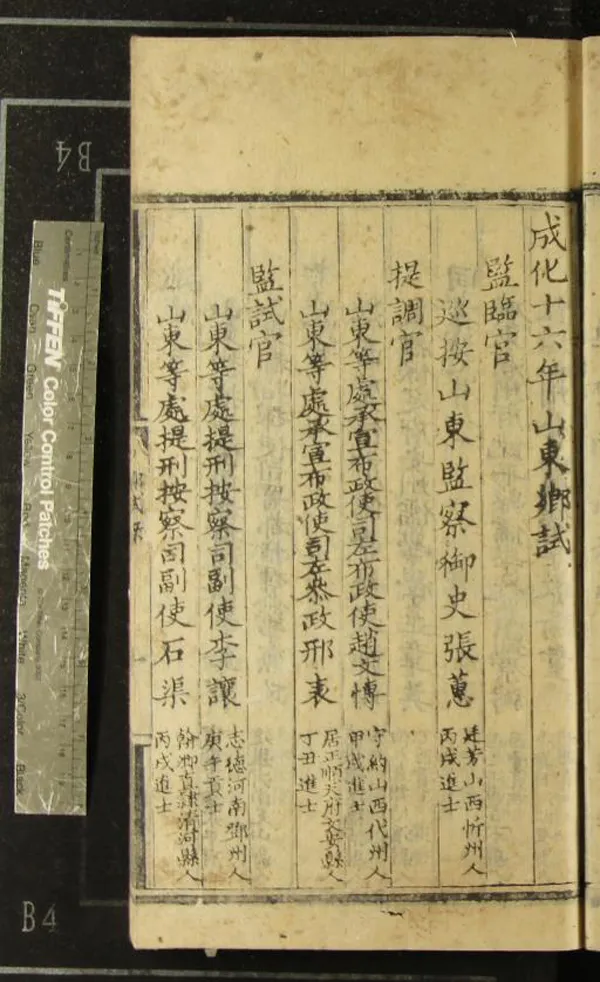 成化十六年山東鄉試
監臨官
巡按山東監察御史張蕙
廷芳山西忻州人
丙戌進士
提調官
山東等處承宣布政使司左布政使趙文博
宇納山西代州人
甲戌進士
山東等處承宣布政使司左叅政邢表
居正順天府文安縣人
丁丑進士
監試官
山東等處提刑按察司副使李讓
志德河南鄧州人
庚午貢士
山東等處提刑按察司副使石渠
翰卿直隸清河縣人
丙戌進士
B4
B4
TIFFEN Color Control Patches
Blue
Cyan
Green
Yellow
Red
Magenta
White
3/Color
Black